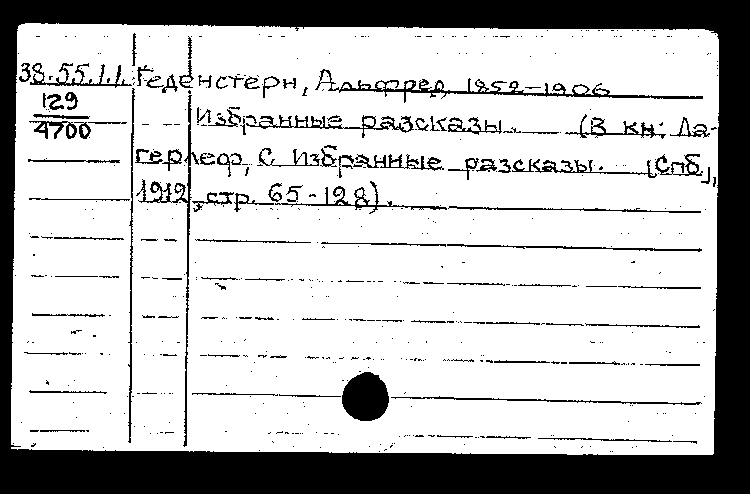 38.55.1.1. Геденстерн, Альфред, 1852-1906
129
4700
Избранные разсказы. (В кн: Ла-
герлеф, С. Избранные разсказы. [Спб.],
1912, стр. 65-128).